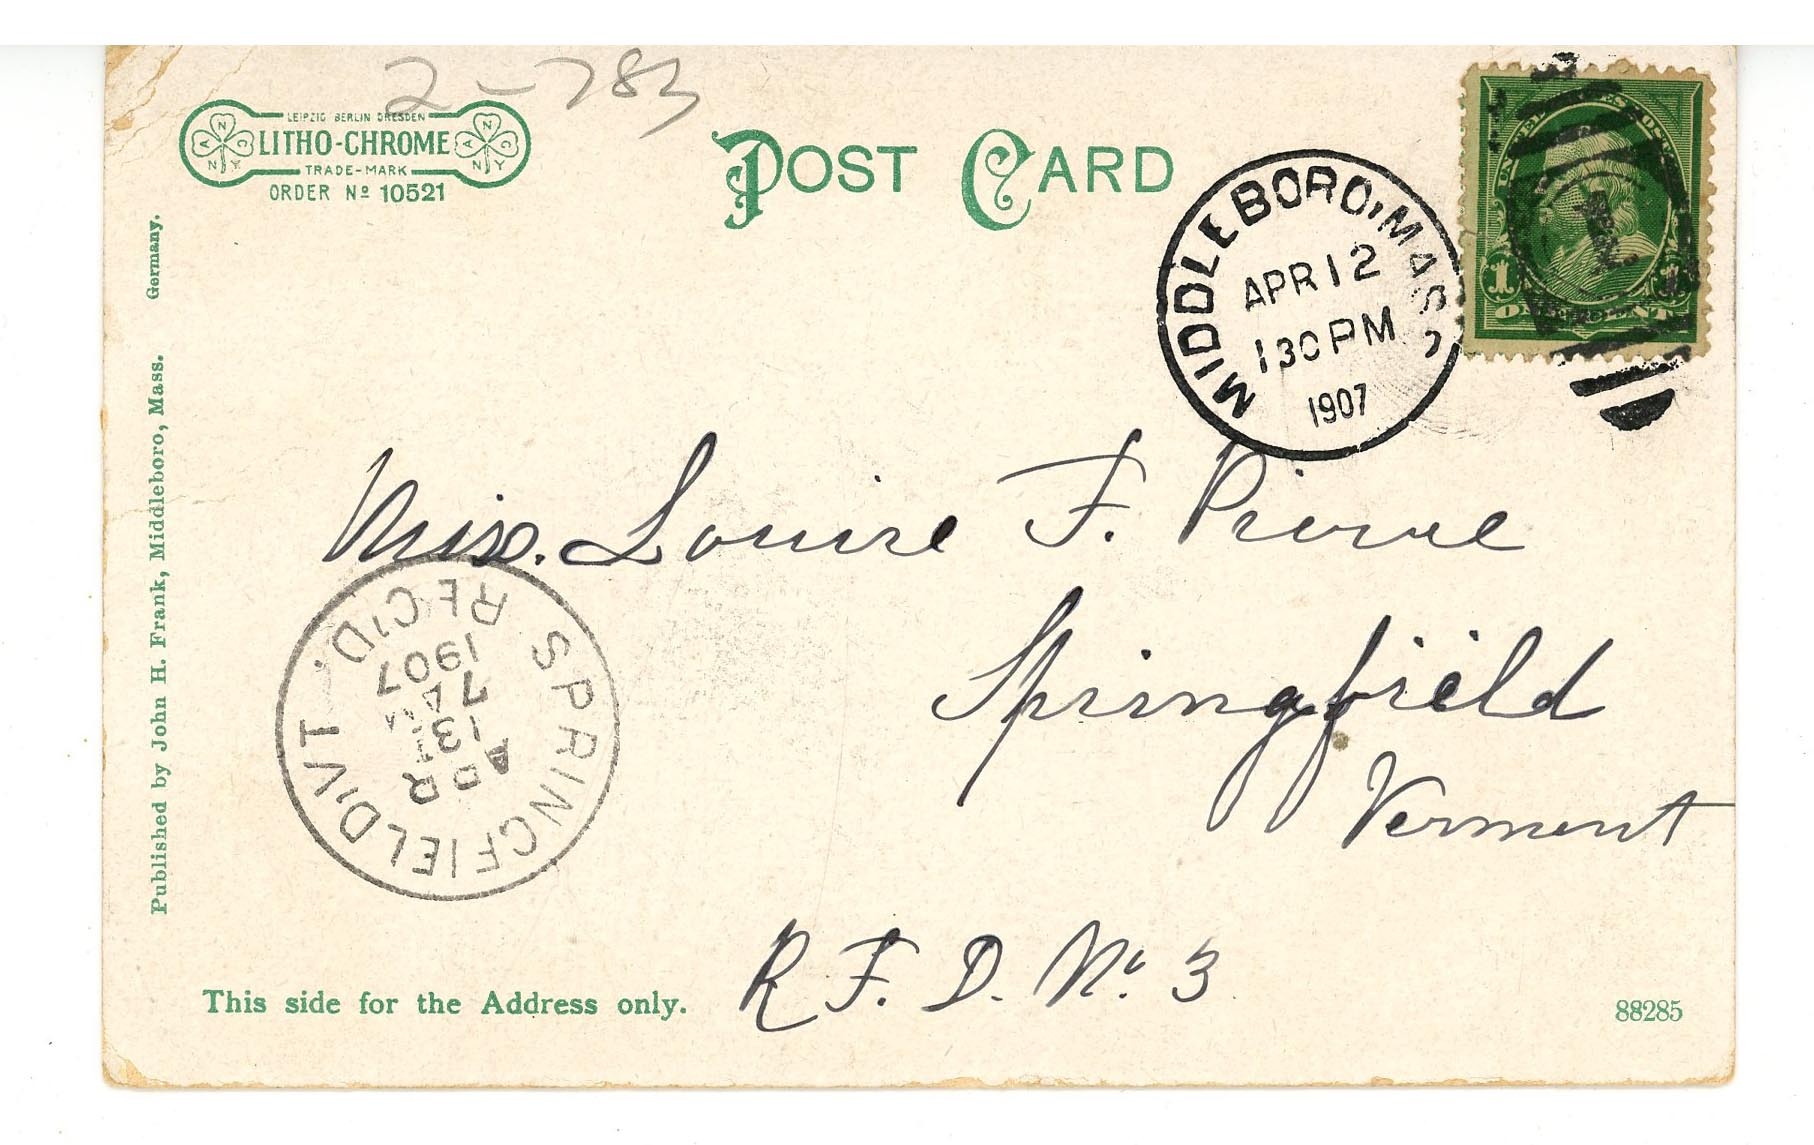 2-783
LEIPZIG BERLIN DRESDEN
LITHO-CHROME
TRADE-MARK
ORDER Nº 10521
N A C N Y
N A C N Y
POST CARD
MIDDLEBORO, MASS
APR 12
130 PM
1907
UNITED STATES POSTAGE
1
ONE CENT
Miss. Louise F. Pierce
Springfield
Vermont
R. F. D. No. 3
SPRINGFIELD, VT.
APR
13
7 AM
1907
REC'D.
Published by John H. Frank, Middleboro, Mass. Germany.
This side for the Address only.
88285